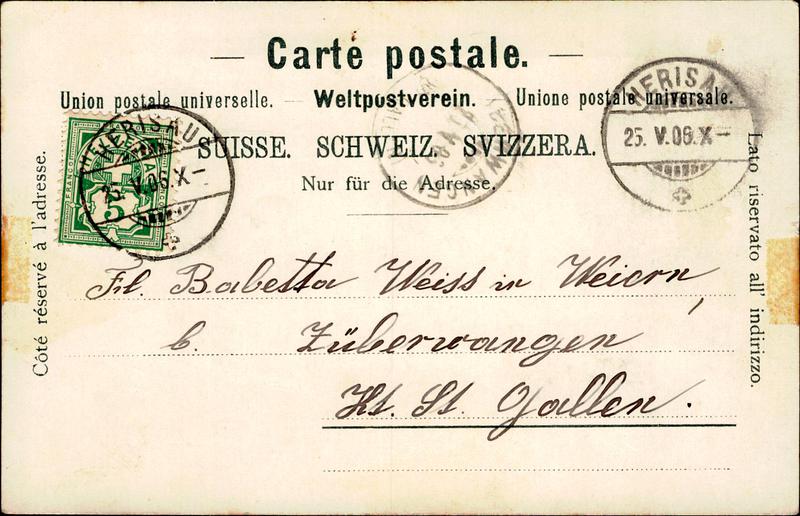 Carte postale.
Union postale universelle. — Weltpostverein. — Unione postale universale.
SUISSE. SCHWEIZ. SVIZZERA.
Nur für die Adresse.
Côté réservé à l'adresse.
Lato riservato all' indirizzo.
HERISAU
25. V. 06. X–
HERISAU
25. V. 06. X–
FRANCO
5
Frl. Babetta Weiss in Weiern,
b. Züberwangen
Kt. St. Gallen.